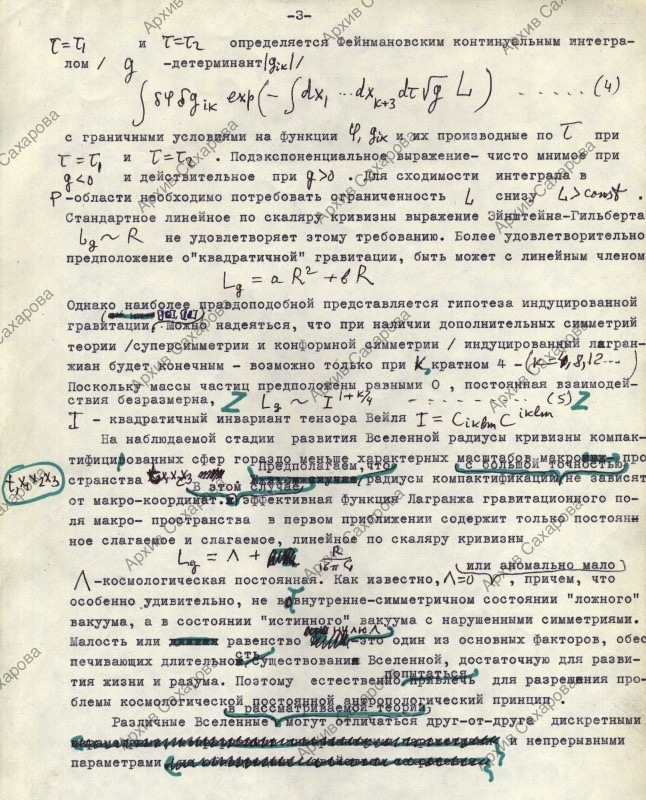 -3-
τ=τ₁ и τ=τ₂ определяется Фейнмановским континуальным интегра-
лом / g -детерминант |gᵢₖ| /
∫ δφ δgᵢₖ exp(−∫dx₁ ...dxₖ₊₃ dτ √g L) ..... (4)
с граничными условиями на функции φ, gᵢₖ и их производные по τ при
τ=τ₁ и τ=τ₂. Подэкспоненциальное выражение- чисто мнимое при
g<0 и действительное при g>0. Для сходимости интеграла в
P-области необходимо потребовать ограниченность L снизу L>const.
Стандартное линейное по скаляру кривизны выражение Эйнштейна-Гильберта
L_g ~ R не удовлетворяет этому требованию. Более удовлетворительно
предположение о"квадратичной" гравитации, быть может с линейным членом
L_g = aR² + bR
Однако наиболее правдоподобной представляется гипотеза индуцированной
гравитации. Можно надеяться, что при наличии дополнительных симметрий
теории /суперсимметрии и конформной симметрии / индуцированный лагран-
жиан будет конечным - возможно только при K, кратном 4 - (K=4,8,12...)
Поскольку массы частиц предположены равными 0, постоянная взаимодей-
ствия безразмерна, L_g ~ I^(1+K/4) ........ (5)
I - квадратичный инвариант тензора Вейля I = C_iklm C^iklm
На наблюдаемой стадии развития Вселенной радиусы кривизны компак-
тифицированных сфер гораздо меньше характерных масштабов макро- про
странства t,x₁x₂x₃ Предполагаем, что с большой точностью
радиусы компактификации не зависят
от макро-координат. В этом случае эффективная функция Лагранжа гравитационного по-
ля макро- пространства в первом приближении содержит только постоян
ное слагаемое и слагаемое, линейное по скаляру кривизны
L_g = Λ + R/16πG
Λ-космологическая постоянная. Как известно, Λ=0 или аномально мало, причем, что
особенно удивительно, не во внутренне-симметричном состоянии "ложного"
вакуума, а в состоянии "истинного" вакуума с нарушенными симметриями.
Малость или равенство нулю Λ -это один из основных факторов, обес
печивающих длительность существования Вселенной, достаточную для разви-
тия жизни и разума. Поэтому естественно попытаться привлечь для разрешения про-
блемы космологической постоянной антропологический принцип.
Различные Вселенные в рассматриваемой теории могут отличаться друг-от-друга дискретными
и непрерывными
параметрами